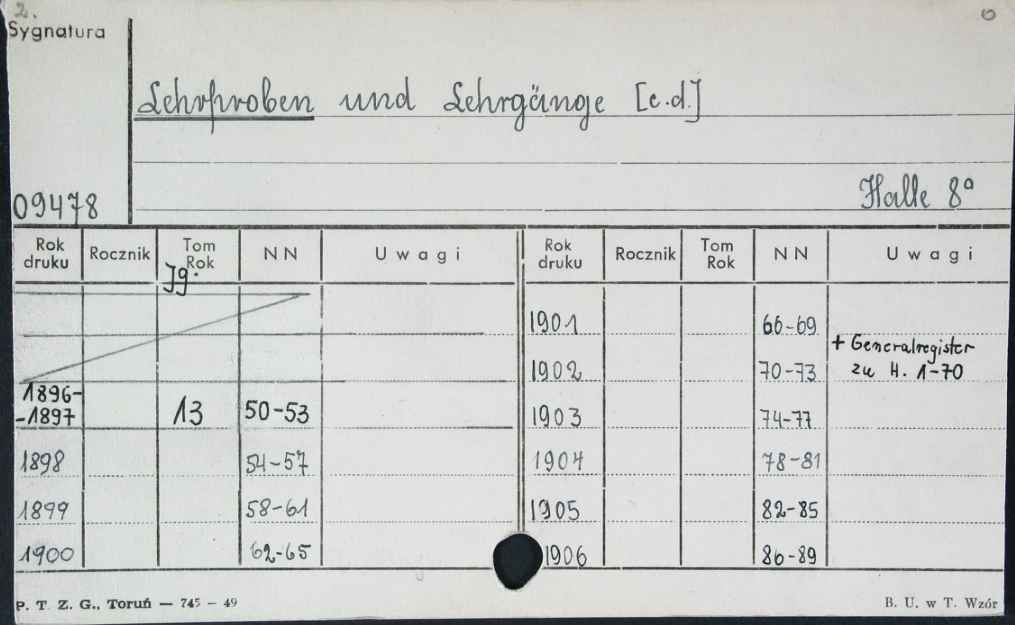 2.
Sygnatura
Lehrproben und Lehrgänge [c.d.]
09478
Halle 8°
Rok druku Rocznik Tom Rok NN Uwagi Rok druku Rocznik Tom Rok NN Uwagi
Jg.
1901 66-69
+ Generalregister
1902 70-73 zu H. 1-70
1896-
-1897 13 50-53 1903 74-77
1898 54-57 1904 78-81
1899 58-61 1905 82-85
1900 62-65 1906 86-89
P. T. Z. G., Toruń — 745 — 49 B. U. w T. Wzór